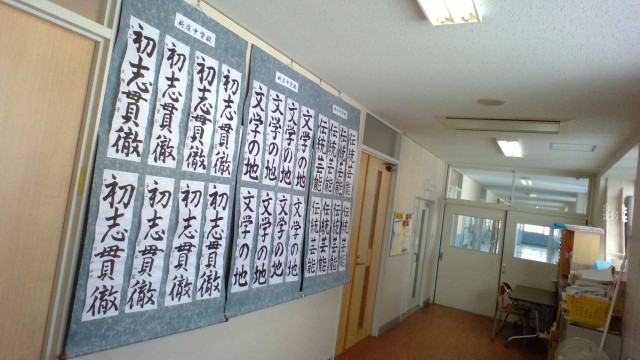 新庄中学校
初志貫徹
初志貫徹
初志貫徹
初志貫徹
初志貫徹
初志貫徹
初志貫徹
初志貫徹
新庄中学校
文学の地
文学の地
文学の地
文学の地
文学の地
文学の地
文学の地
文学の地
伝統芸能
伝統芸能
伝統芸能
伝統芸能
伝統芸能
伝統芸能
伝統芸能
伝統芸能